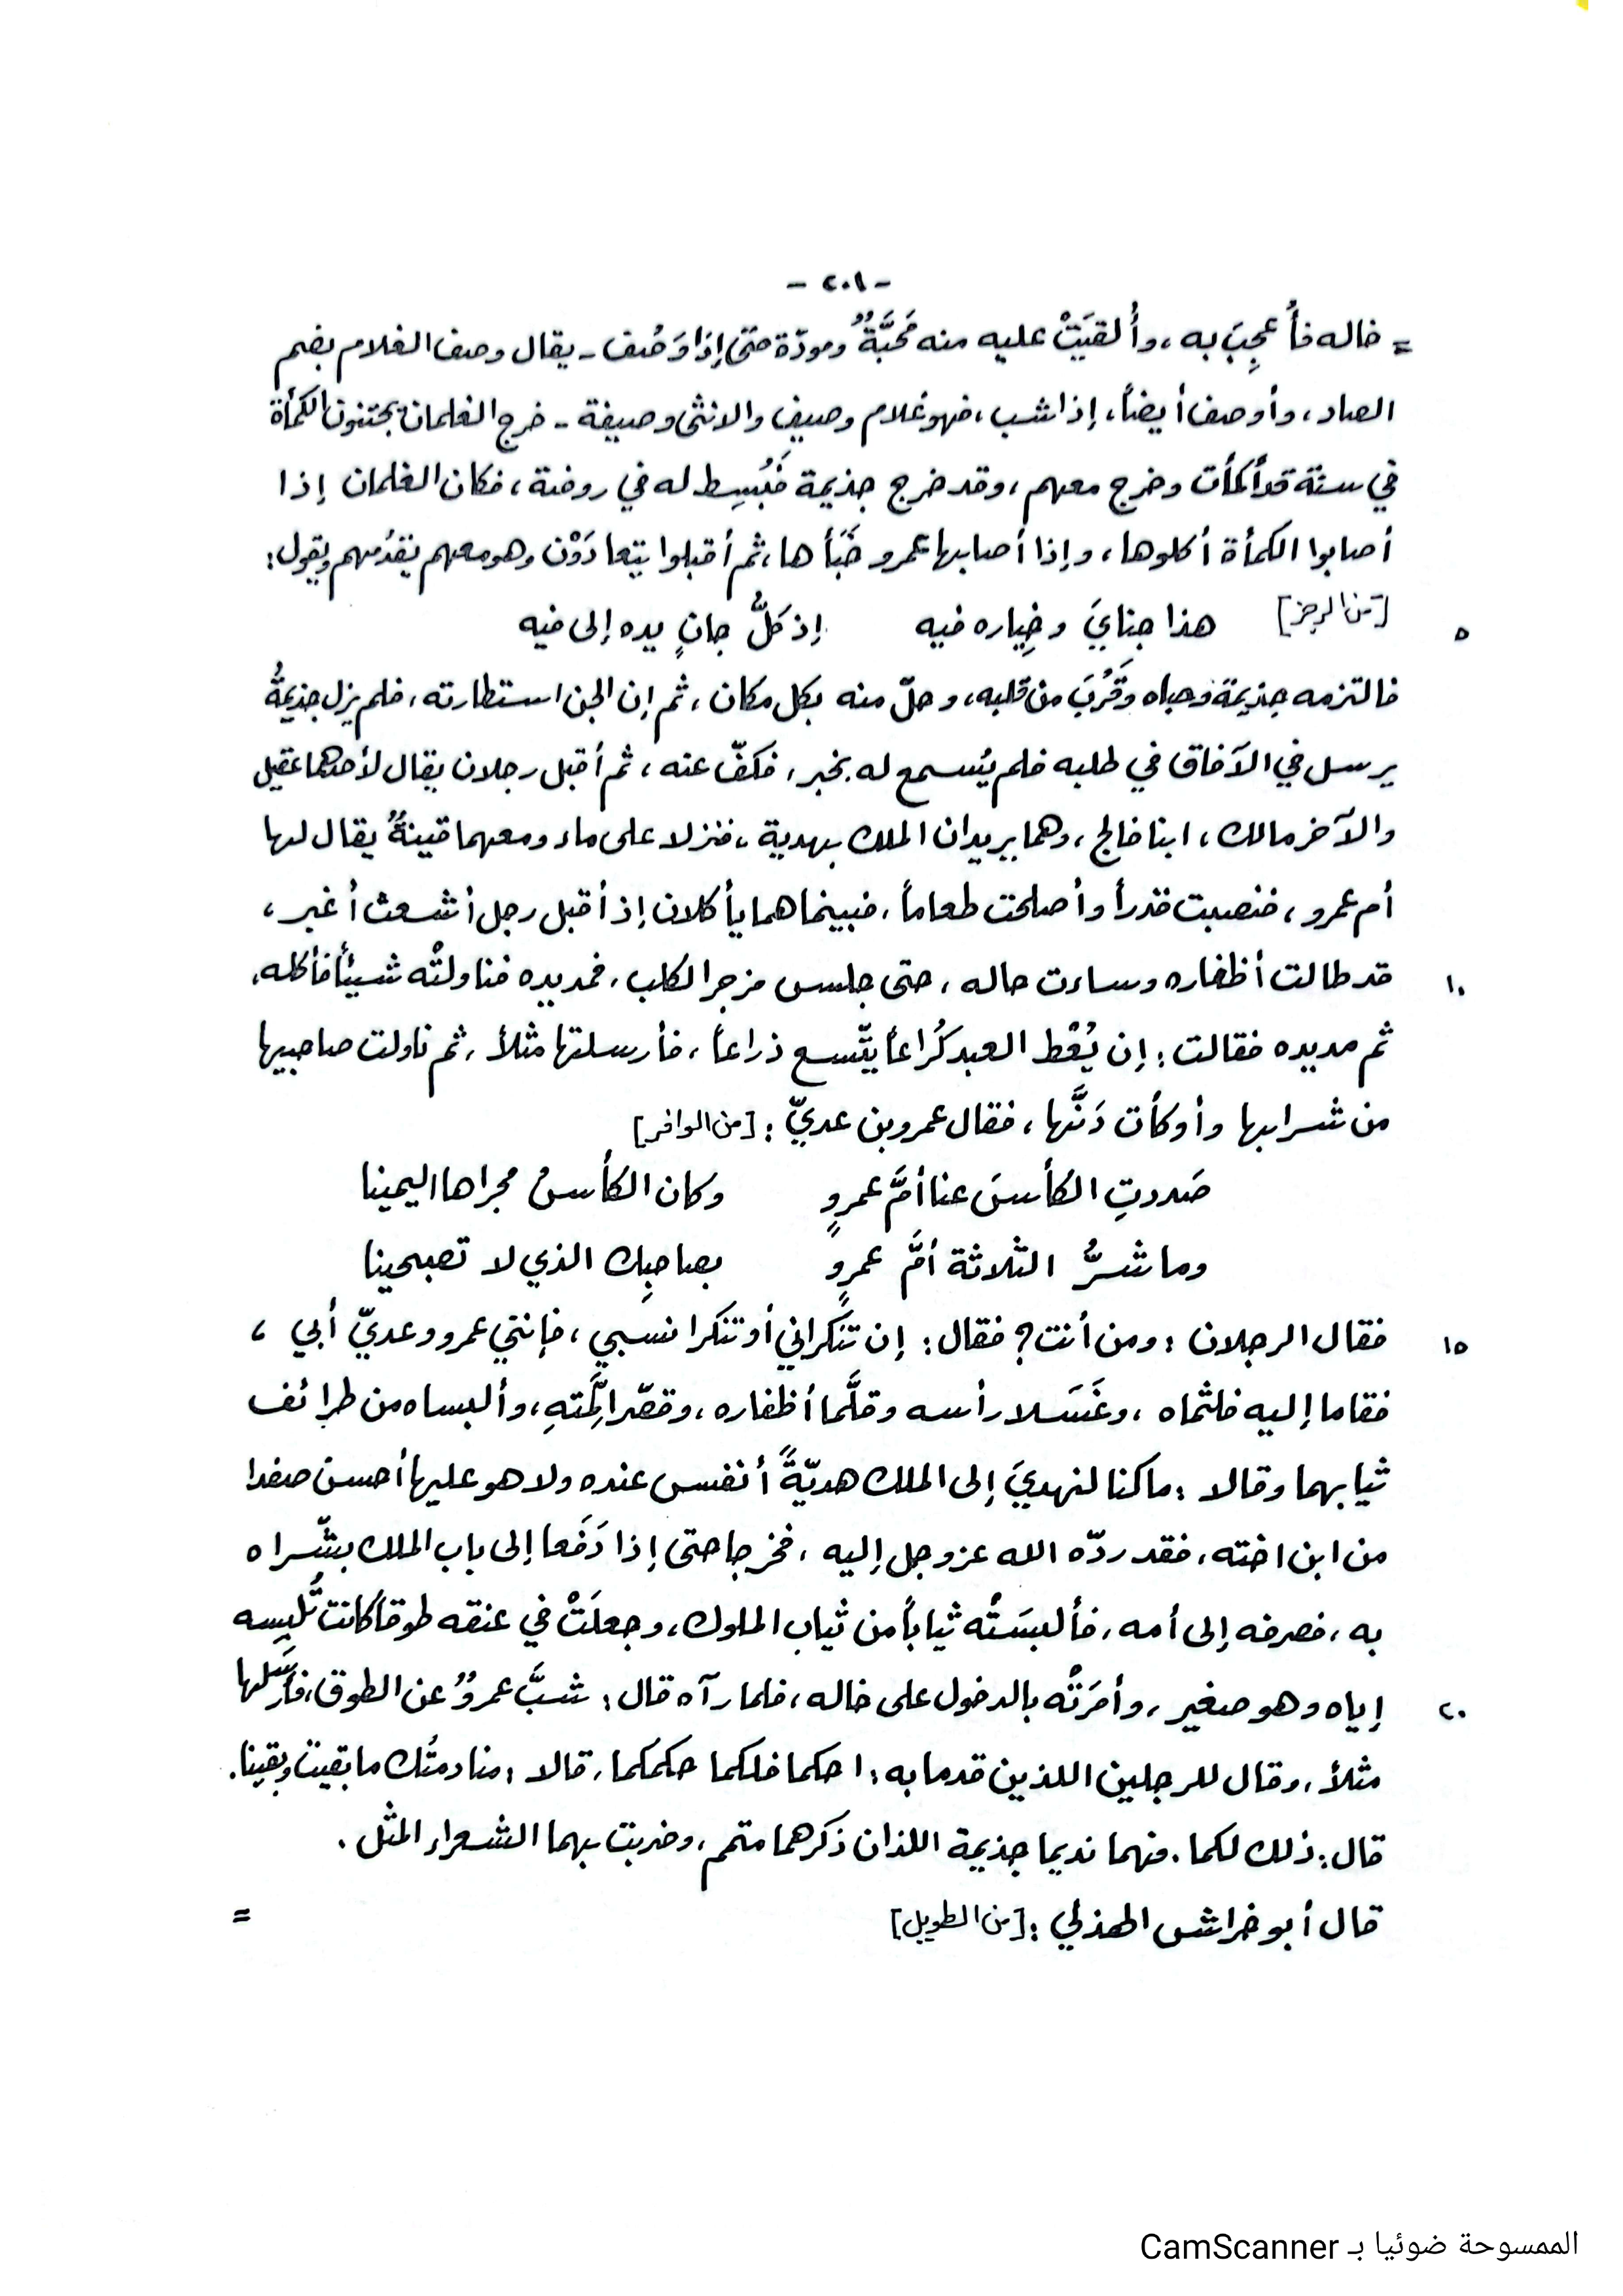 - ٢٠١ -
= خاله فأُعجِبَ به ، وأُلقيَتْ عليه منه مَحبَّةٌ ومودّة حتى إذا وَصُف ـ يقال وصف الغلام بضم
الصاد ، وأوصف أيضاً ، إذا شب ، فهو غلام وصيف والانثى وصيفة ـ خرج الغلمان يجتنون الكمأة
في سنة قد أكمأت وخرج معهم ، وقد خرج جذيمة فَبُسِط له في روضة ، فكان الغلمان إذا
أصابوا الكمأة أكلوها ، وإذا أصابها عمرو خَبَأها ، ثم أقبلوا يتعادَوْن وهو معهم يقدُمهم ويقول :
٥ [من الرجز] هذا جنايَ وخِياره فيه إذ كلُّ جانٍ يده إلى فيه
فالتزمه جذيمة وحباه وقَرُبَ من قلبه ، وحلّ منه بكل مكان ، ثم إن الجن استطارته ، فلم يزل جذيمةُ
يرسل في الآفاق في طلبه فلم يُسمع له بخبر ، فكفّ عنه ، ثم أقبل رجلان يقال لأحدهما عقيل
والآخر مالك ، ابنا فالج ، وهما يريدان الملك بهدية ، فنزلا على ماء ومعهما قينةٌ يقال لها
أم عمرو ، فنصبت قدراً وأصلحت طعاماً ، فبينما هما يأكلان إذ أقبل رجل أشعث أغبر ،
١٠ قد طالت أظفاره وساءت حاله ، حتى جلس مزجر الكلب ، فمد يده فناولتْه شيئاً فأكله ،
ثم مد يده فقالت : إن يُعْط العبد كُراعاً يتّسع ذراعاً ، فأرسلتها مثلاً ، ثم ناولت صاحبيها
من شرابها وأوكأت دَنَّها ، فقال عمرو بن عديّ : [من الوافر]
صَددتِ الكأسَ عنا أمَّ عمرٍو وكان الكأسُ مجراها اليمينا
وما شرُّ الثلاثة أمَّ عمرٍو بصاحِبِك الذي لا تصبحينا
١٥ فقال الرجلان : ومن أنت ؟ فقال : إن تنكراني أو تنكرا نسبي ، فإنني عمرو وعديّ أبي ،
فقاما إليه فلثماه ، وغَسَلا رأسه وقلَّما أظفاره ، وقصّرا لِمَّتهِ ، وألبساه من طرائف
ثيابهما وقالا : ما كنا لنهديَ إلى الملك هديّةً أنفس عنده ولا هو عليها أحسن صفدا
من ابن اخته ، فقد ردّه الله عز وجل إليه ، فخرجا حتى إذا دَفَعا إلى باب الملك بشّراه
به ، فصرفه إلى أمه ، فألبسَتْه ثياباً من ثياب الملوك ، وجعلَتْ في عنقه طوقاً كانت تُلبِسه
٢٠ إياه وهو صغير ، وأمرَتْه بالدخول على خاله ، فلما رآه قال : شبَّ عمروٌ عن الطوق ، فأرسَلها
مثلاً ، وقال للرجلين اللذين قدما به : احكما فلكما حكمكما ، قالا : منادمتُك ما بقيتَ وبقينا .
قال : ذلك لكما . فهما نديما جذيمة اللذان ذكرهما متمم ، وضربت بهما الشعراء المثل .
قال أبو خراش الهذلي : [من الطويل] =
الممسوحة ضوئيا بـ CamScanner